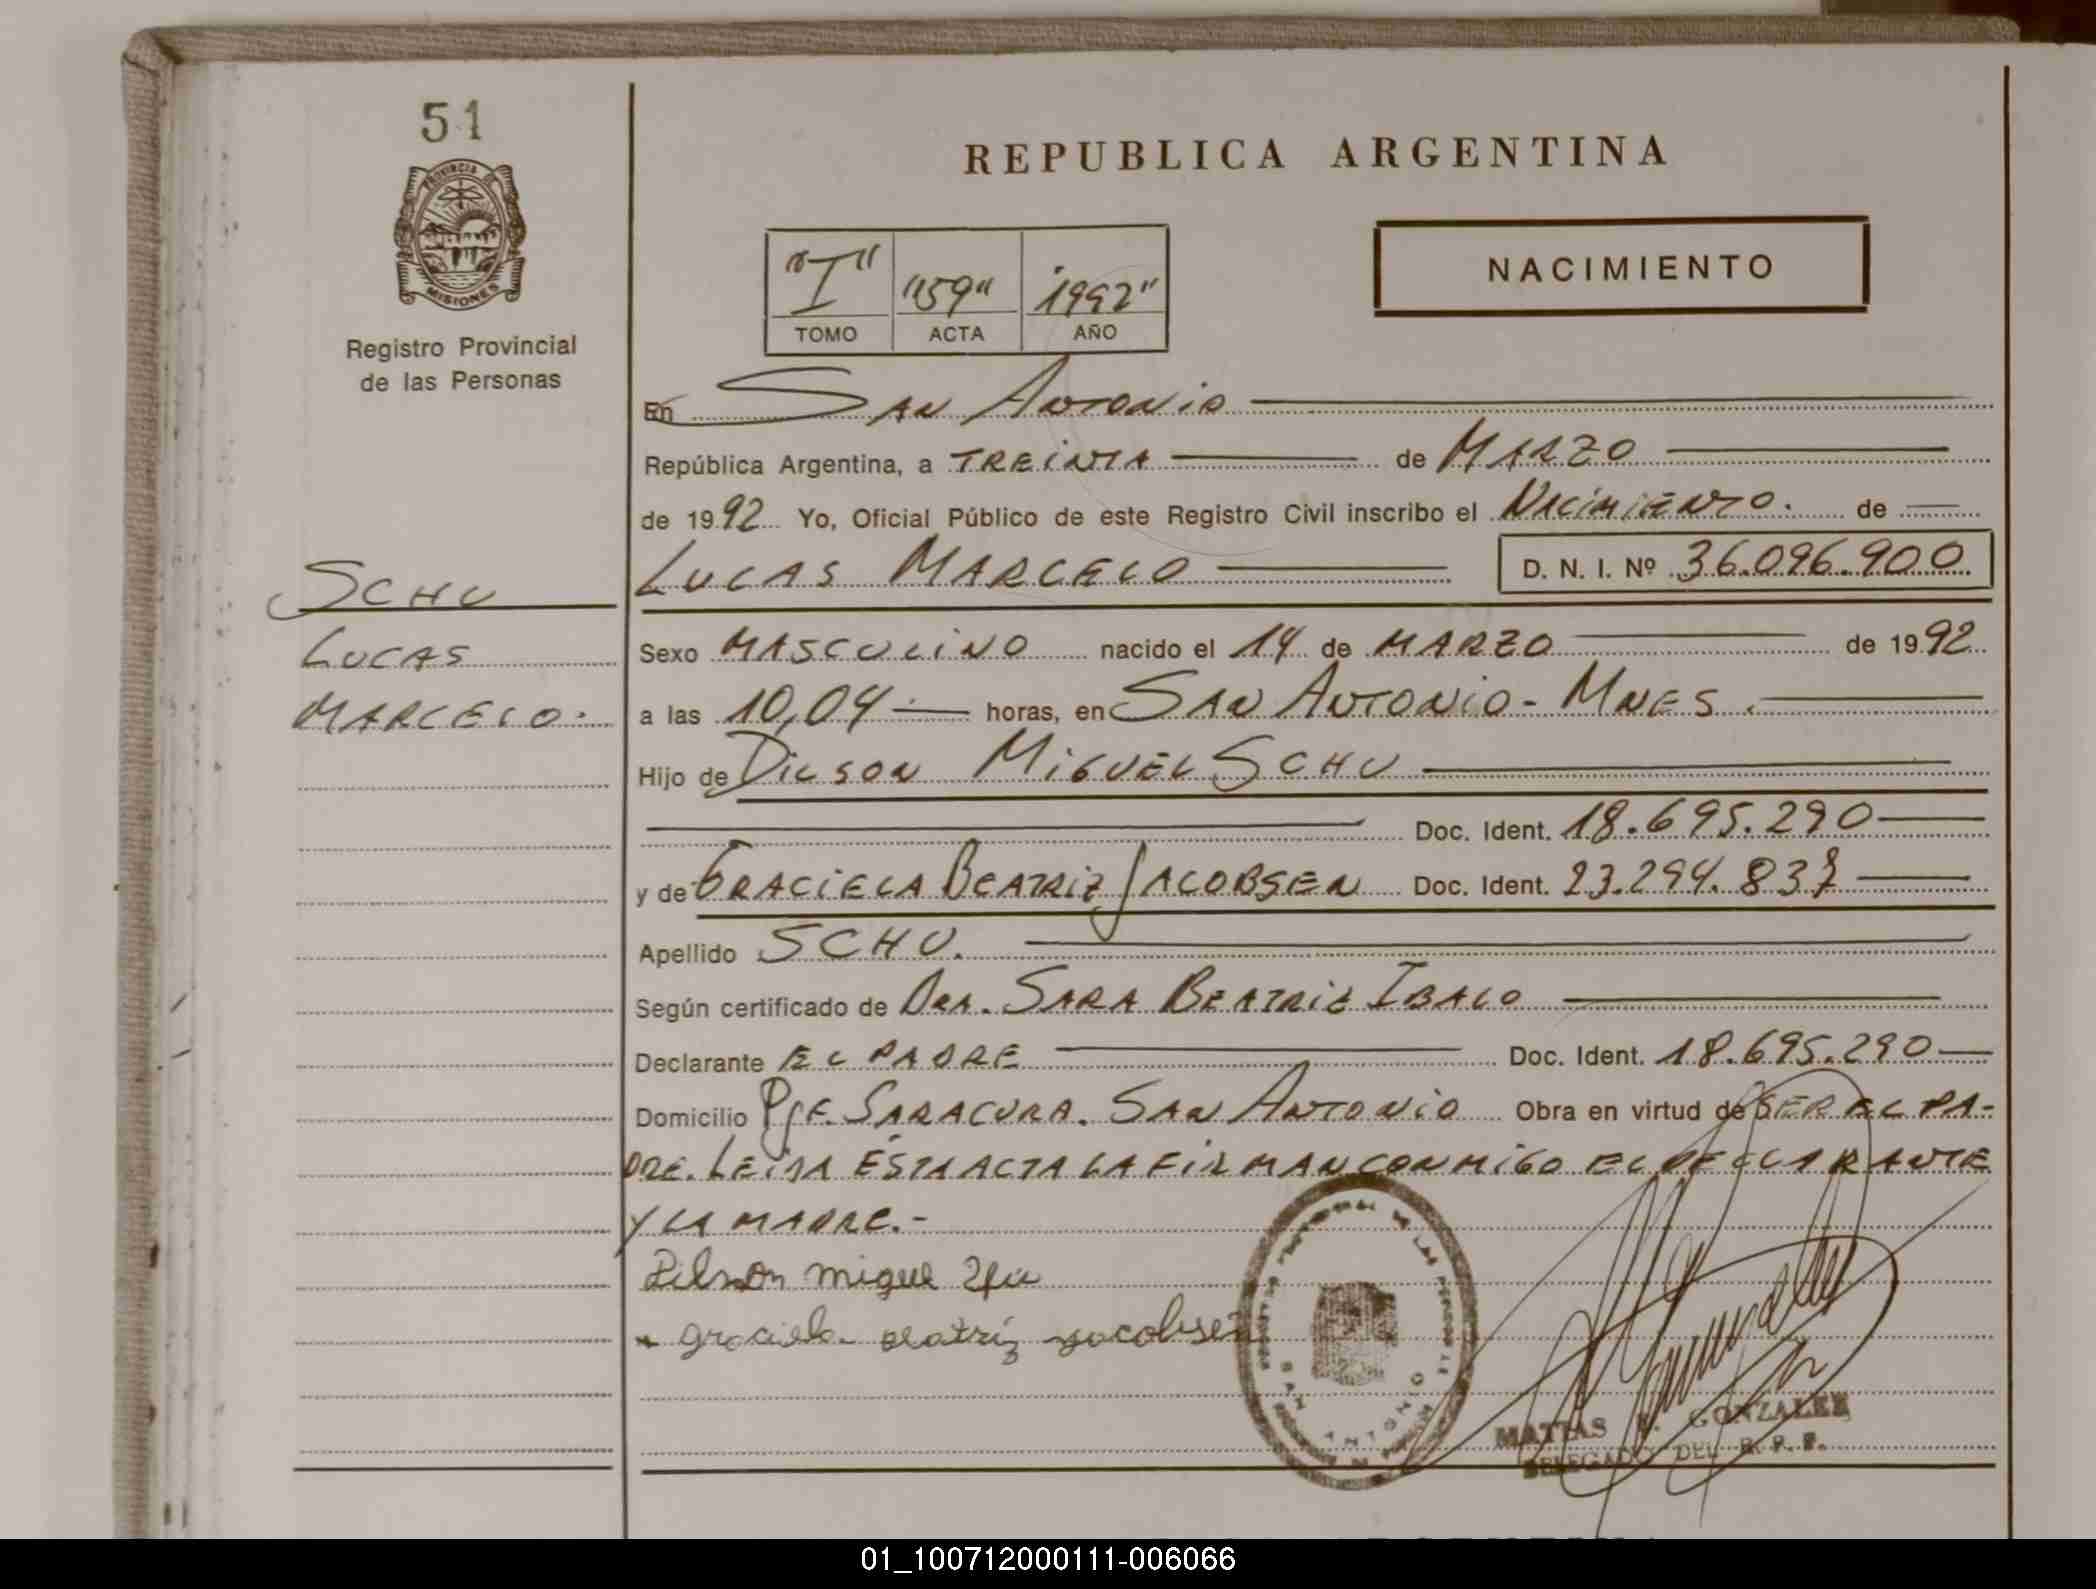 51
PROVINCIA DE
MISIONES
Registro Provincial
de las Personas
REPUBLICA ARGENTINA
NACIMIENTO
"I" "59" "1992"
TOMO ACTA AÑO
En San Antonio
República Argentina, a TREINTA de MARZO
de 1992 Yo, Oficial Público de este Registro Civil inscribo el NACIMIENTO. de
LUCAS MARCELO D. N. I. Nº 36.096.900
SCHU
LUCAS
MARCELO.
Sexo MASCULINO nacido el 14 de MARZO de 1992
a las 10,04 horas, en SAN ANTONIO - MNES.
Hijo de DILSON MIGUEL SCHU
Doc. Ident. 18.695.290
y de GRACIELA BEATRIZ JACOBSEN Doc. Ident. 23.294.837
Apellido SCHU.
Según certificado de DRA. SARA BEATRIZ IBALO
Declarante EL PADRE Doc. Ident. 18.695.290
Domicilio Pje. SARACURA. SAN ANTONIO Obra en virtud de SER EL PA-
DRE. LEIDA ÉSTA ACTA LA FIRMAN CONMIGO EL DECLARANTE
Y LA MADRE.-
Dilson Miguel
graciela beatriz jacobsen
SAN ANTONIO
MATIAS GONZALEZ
DELEGADO DEL R. P. P.
01_100712000111-006066